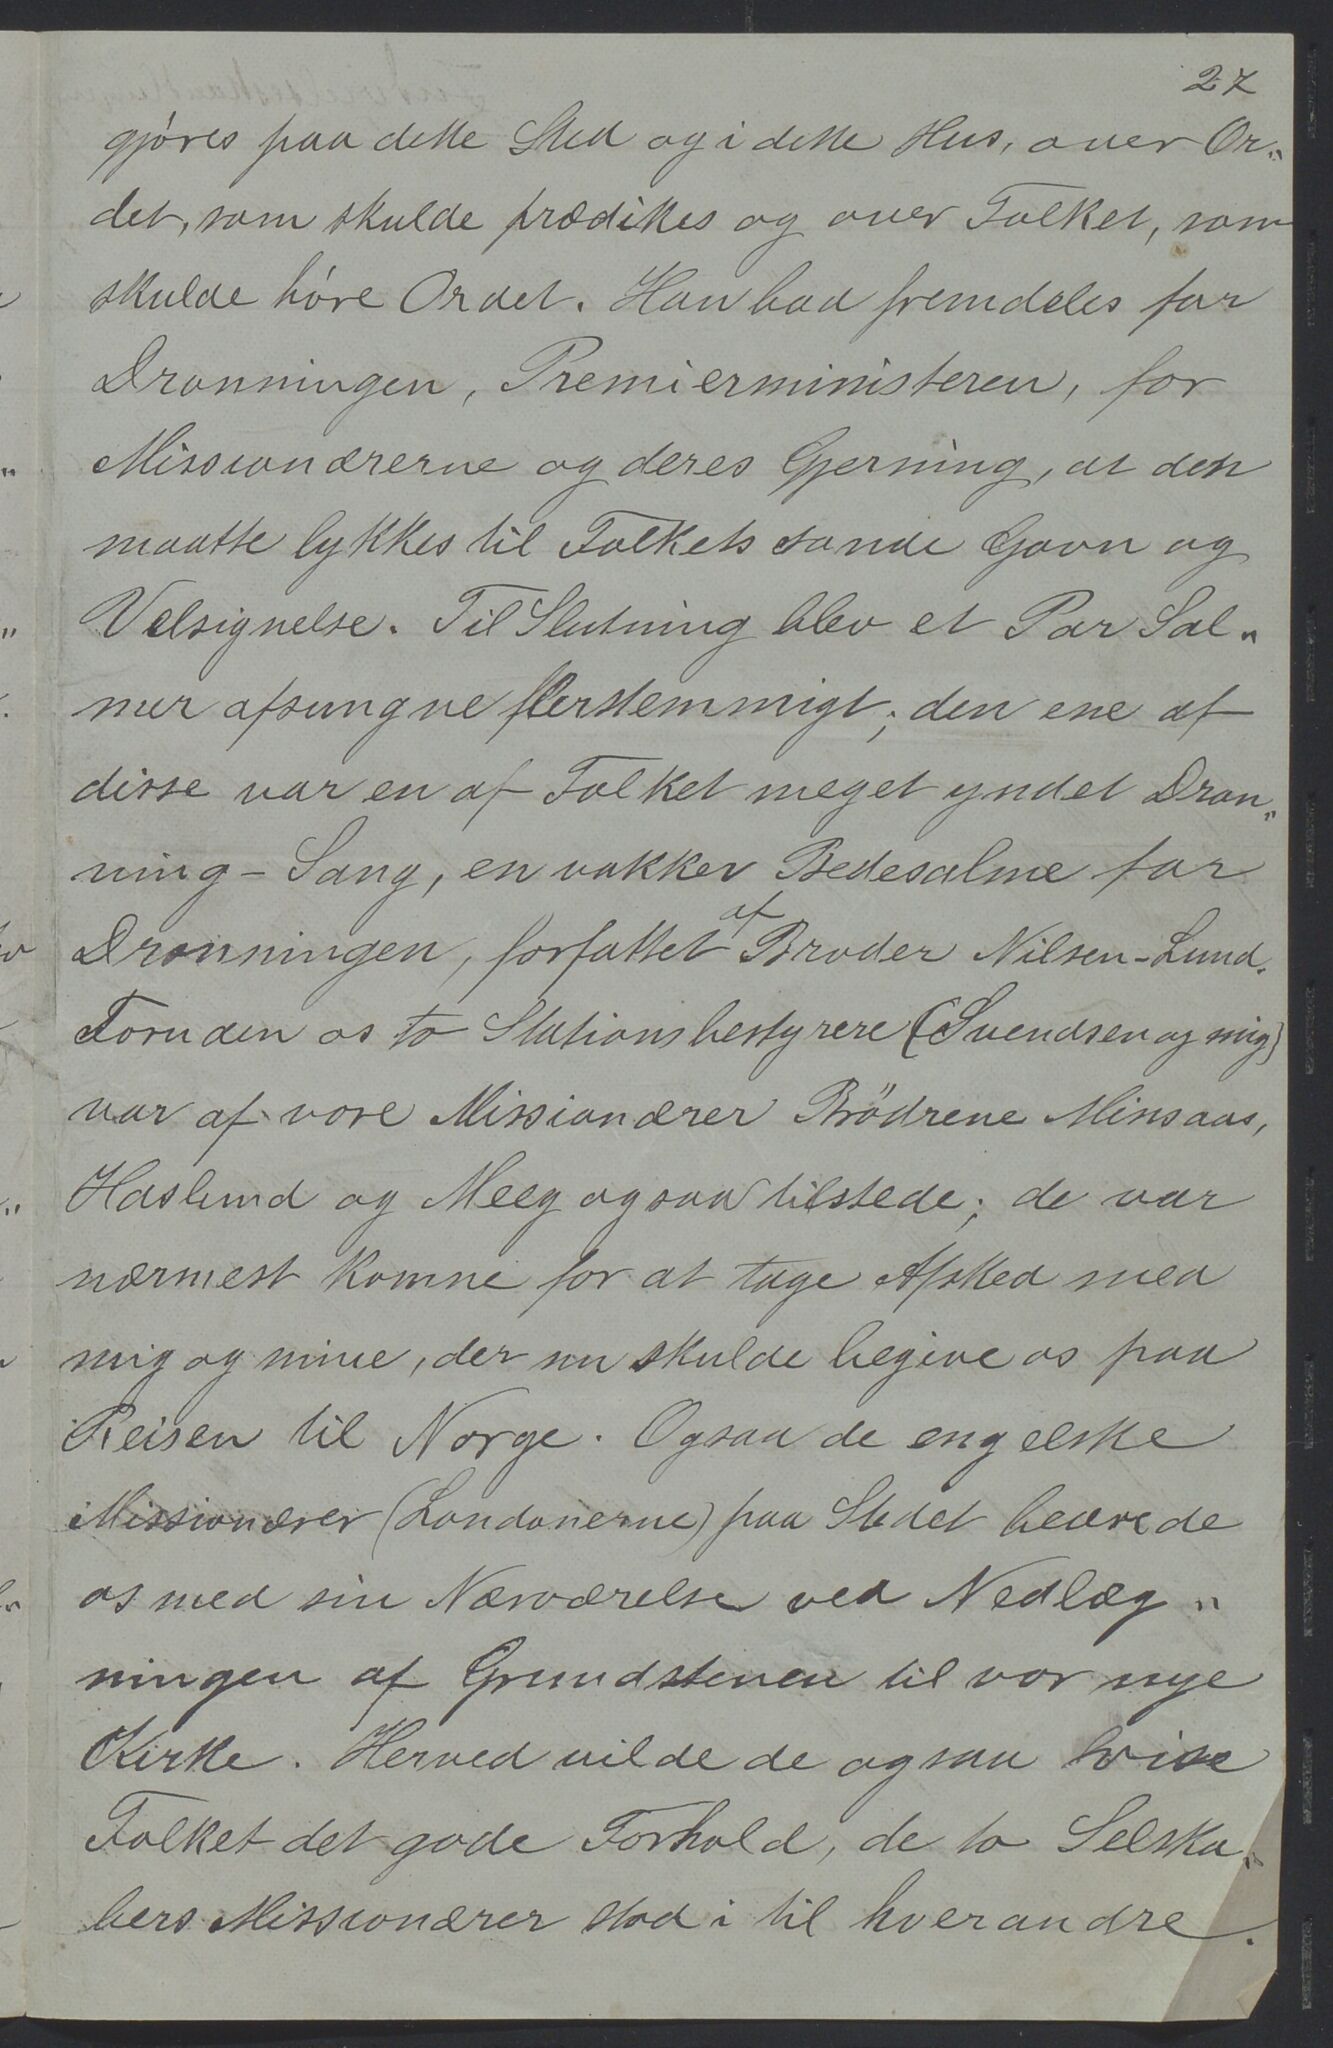 27
gjöres paa dette Sted og i dette Hus, over Or„
det, som skulde prædikes og over Folket, som
skulde høre Ordet. Han bad fremdeles for
Dronningen, Premierministeren, for
Missionærerne og deres Gjerning, at den
maatte lykkes til Folkets sande Gavn og
Velsignelse. Til Slutning blev et Par Sal„
mer afsungne flerstemmigt; den ene af
disse var en af Folket meget yndet Dron„
ning-Sang, en vakker Bedesalme for
Dronningen, forfattet af Broder Nilsen-Lund.
Foruden os to Stationsbestyrere (Svendsen og mig)
var af vore Missionærer Brödrene Minsaas,
Haslund og Meeg ogsaa tilstede; de var
nærmest komne for at tage Afsked med
mig og mine, der nu skulde begive os paa
Reisen til Norge. Ogsaa de engelske
Missionærer (Londonerne) paa Stedet beærede
os med sin Nærværelse ved Nedlæg„
ningen af Grundstenen til vor nye
Kirke. Herved vilde de ogsaa vise
Folket det gode Forhold, de to Selska„
bers Missionærer stod i til hverandre.